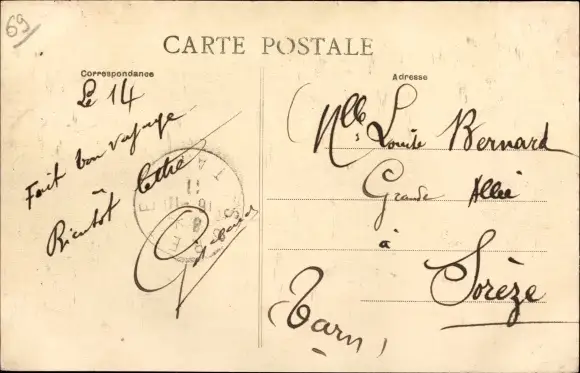 69
CARTE POSTALE
Correspondance
Adresse
Le 14
Fait bon voyage
Bientôt lettre
Mlle Louise Bernard
Grande Allée
à
Sorèze
(Tarn)